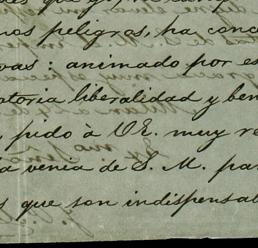 que
nos peligros, ha conc
vas: animado por es
atoria liberalidad y ben
, pido à VE. muy re
la venia de S. M. par
s que son indispensab